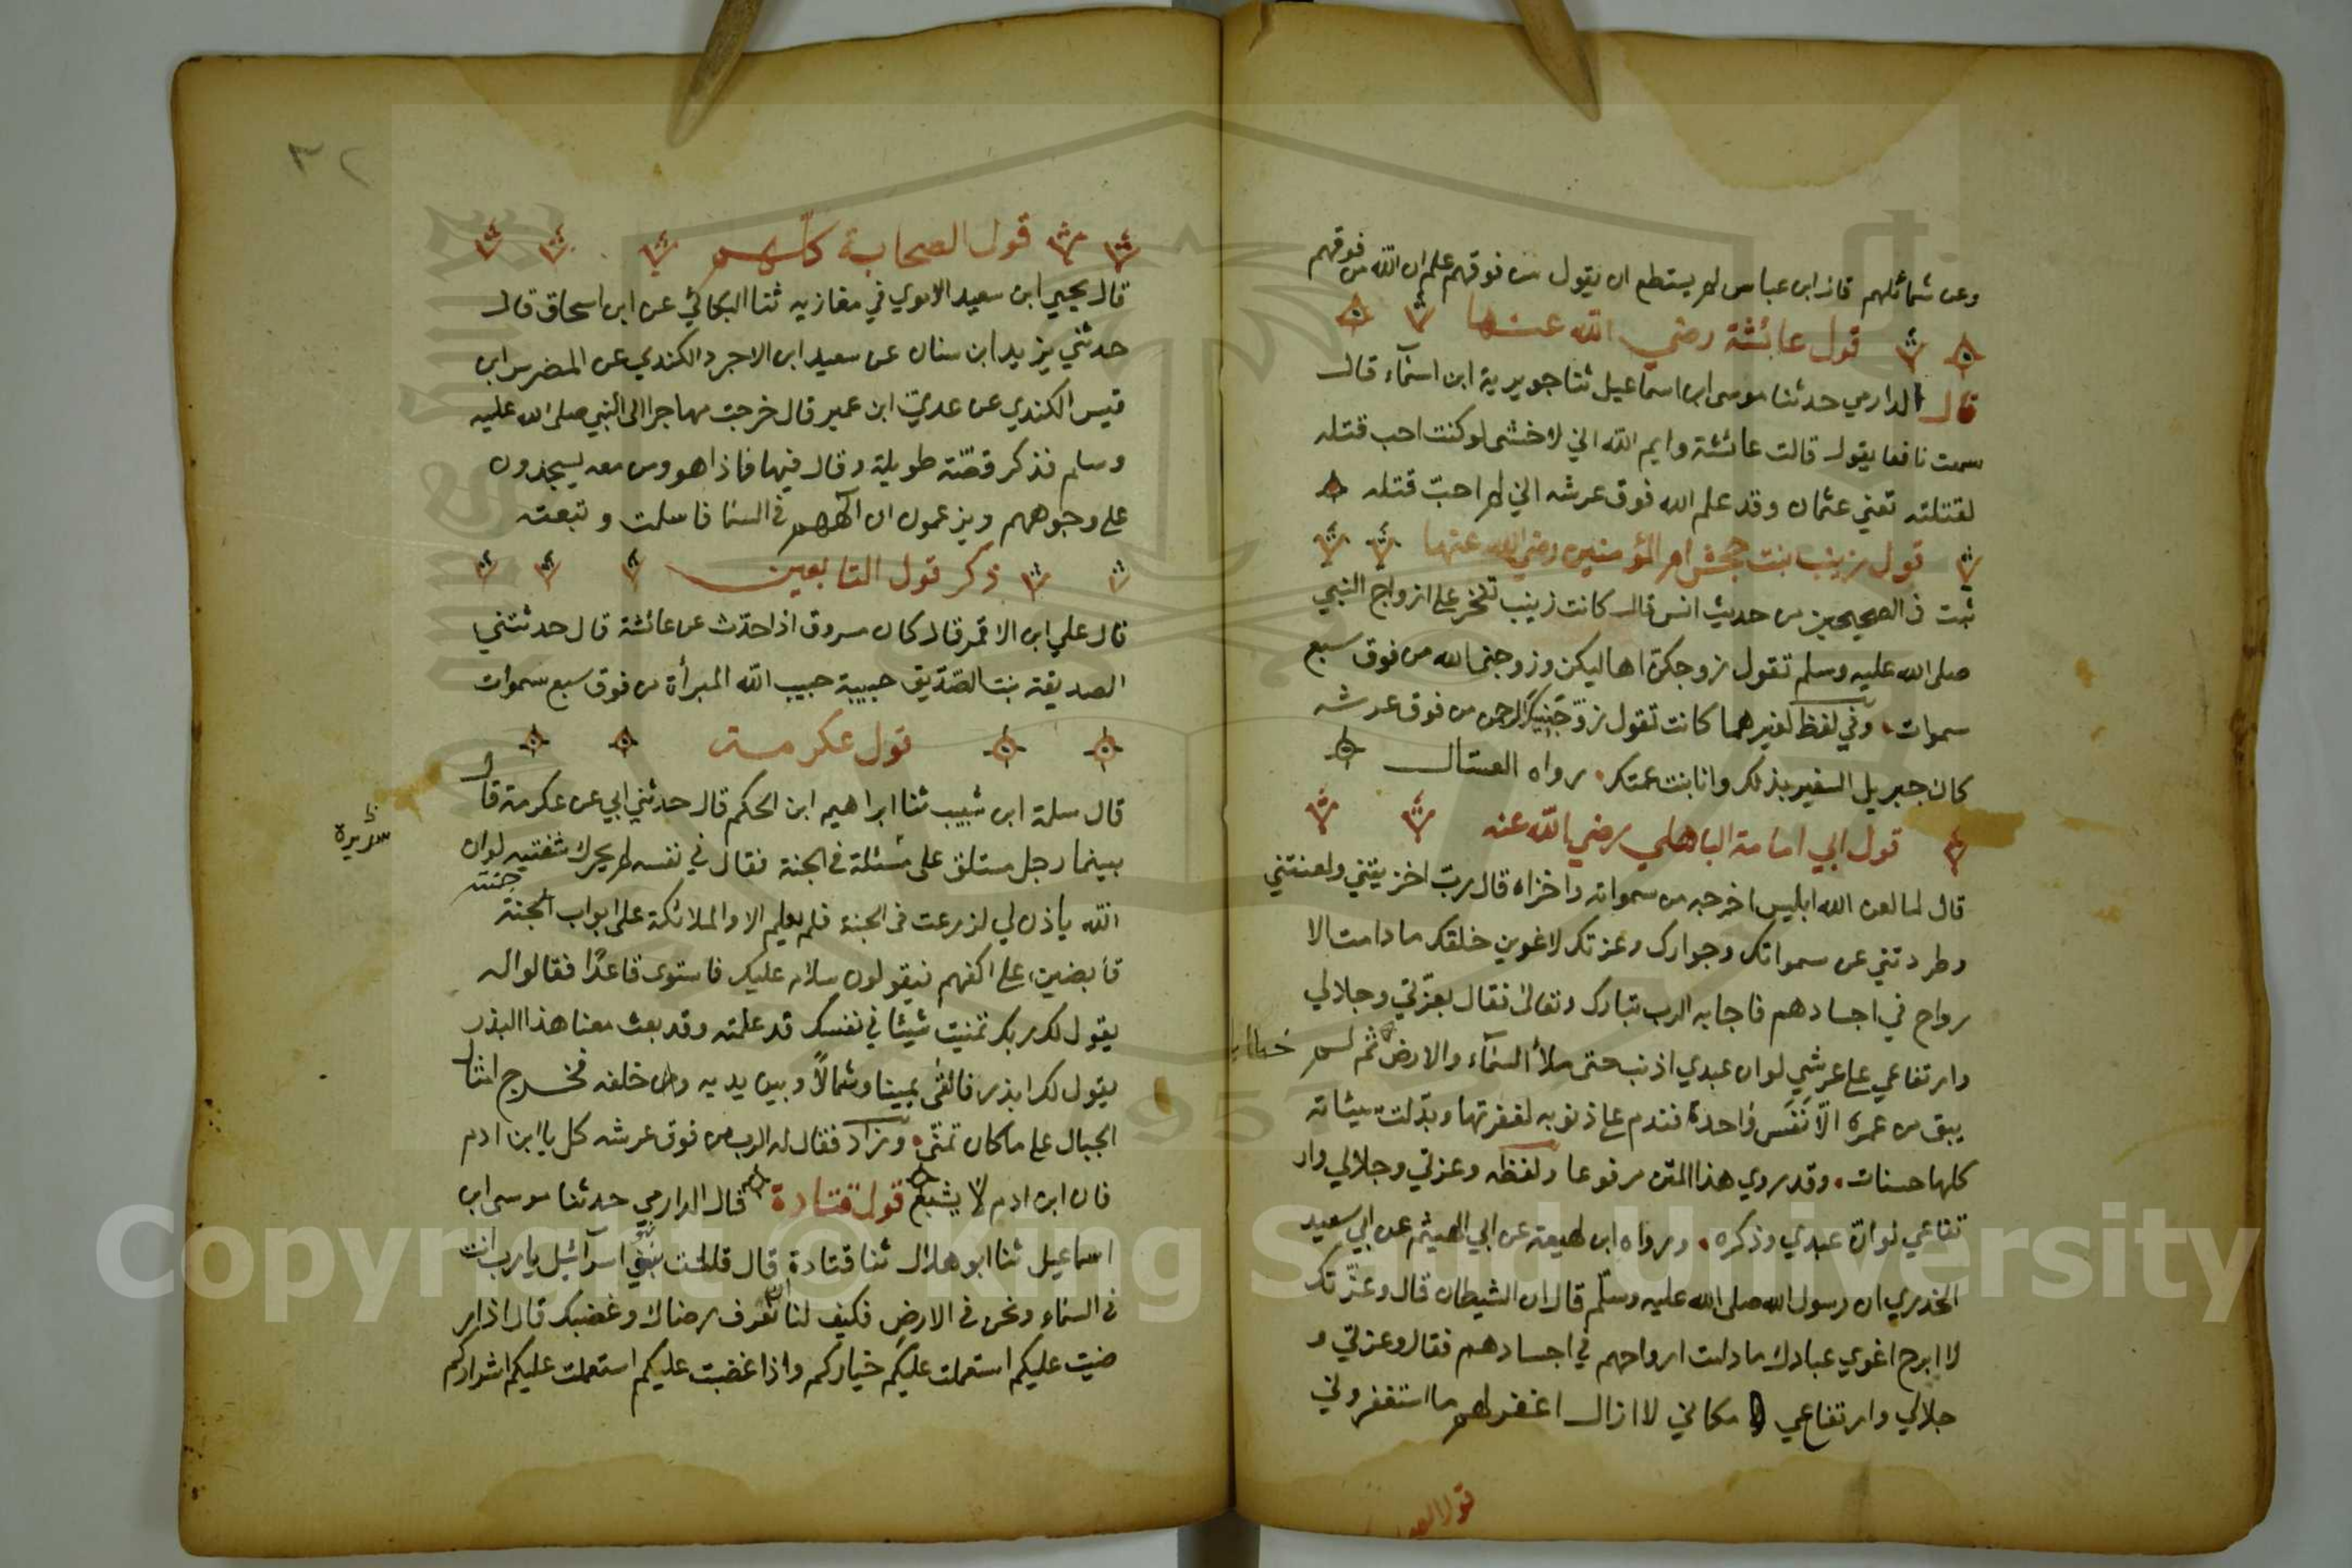 وعن شمائلهم قال ابن عباس لم يستطع ان يقول من فوقهم علم ان الله من فوقهم
قول عائشة رضي الله عنها
قال الدارمي حدثنا موسى ابن اسماعيل ثنا جويرية ابن اسماء قال
سمعت نافعا يقول قالت عائشة وايم الله اني لاخشى لو كنت احب قتله
لقتلته تعني عثمان وقد علم الله فوق عرشه اني لم احب قتله
قول زينب بنت جحش ام المؤمنين رضي الله عنها
ثبت في الصحيحين من حديث انس قال كانت زينب تفخر على ازواج النبي
صلى الله عليه وسلم تقول زوجكن اهاليكن وزوجني الله من فوق سبع
سموات وفي لفظ لغيرهما كانت تقول زوجنيك الرحمن من فوق عرشه
كان جبريل السفير بذلك وانا بنت عمتك رواه العسال
قول ابي امامة الباهلي رضي الله عنه
قال لما لعن الله ابليس اخرجه من سمواته واخزاه قال رب اخزيتني ولعنتني
وطردتني عن سمواتك وجوارك وعزتك لاغوين خلقك ما دامت الا
رواح في اجسادهم فاجابه الرب تبارك وتعالى فقال بعزتي وجلالي
وارتفاعي على عرشي لو ان عبدي اذنب حتى ملأ السماء والارض ثم لم
يبق من عمره الا نفس واحدة فندم على ذنوبه لغفرتها وبدلت سيئاته
كلها حسنات وقد روي هذا المتن مرفوعا ولفظه وعزتي وجلالي وار
تفاعي لو ان عبدي وذكره ورواه ابن لهيعة عن ابي الهيثم عن ابي سعيد
الخدري ان رسول الله صلى الله عليه وسلم قال ان الشيطان قال وعزتك
لا ابرح اغوي عبادك ما دامت ارواحهم في اجسادهم فقال وعزتي و
جلالي وارتفاعي مكاني لا ازال اغفر لهم ما استغفروني
٣٢
قول الصحابة كلهم
قال يحيى ابن سعيد الاموي في مغازيه ثنا البكائي عن ابن اسحاق قال
حدثني يزيد ابن سنان عن سعيد ابن الاجرد الكندي عن المضرس ابن
قيس الكندي عن عدي ابن عمير قال خرجت مهاجرا الى النبي صلى الله عليه
وسلم فذكر قصة طويلة وقال فيها فاذا هو ومن معه يسجدون
على وجوههم ويزعمون ان آلههم في السما فاسلمت وتبعته
ذكر قول التابعين
قال علي ابن الاقمر قال كان مسروق اذا حدث عن عائشة قال حدثتني
الصديقة بنت الصديق حبيبة حبيب الله المبرأة من فوق سبع سموات
قول عكرمة
قال سلمة ابن شبيب ثنا ابراهيم ابن الحكم قال حدثني ابي عن عكرمة قال
بينما رجل مستلق على مثلة في الجنة فقال في نفسه لم يحرك شفتيه لو ان
الله ياذن لي لزرعت في الجنة فلم يعلم الا والملائكة على ابواب الجنة جنته
قابضين على اكفهم فيقولون سلام عليك فاستوى قاعدا فقالوا له
يقول لك ربك تمنيت شيئا في نفسك قد علمته وقد بعث معنا هذا البذر
يقول لك ابذر فالقى يمينا وشمالا وبين يديه ومن خلفه فخرج امثال
الجبال على ما كان تمنى وزاد فقال له الرب من فوق عرشه كل يا ابن ادم
فان ابن ادم لا يشبع قول قتادة قال الدارمي حدثنا موسى ابن
اسماعيل ثنا ابو هلال ثنا قتادة قال قالت بنو اسرائيل يا رب انت
في السماء ونحن في الارض فكيف لنا ان نعرف رضاك وغضبك قال اذا ر
ضيت عليكم استعملت عليكم خياركم واذا غضبت عليكم استعملت عليكم اشراركم
Copyright © King Saud University